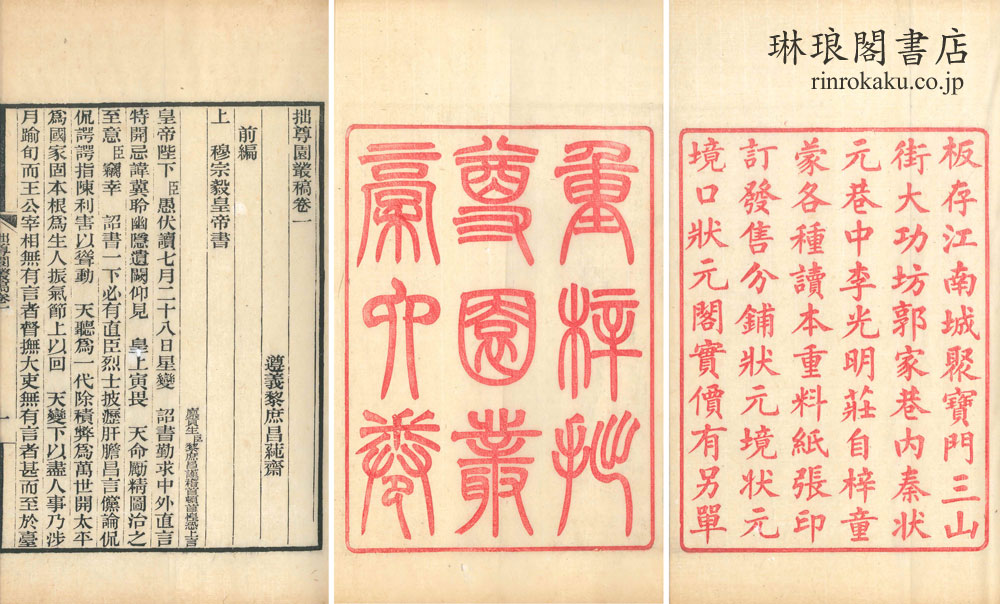 琳琅閣書店
rinrokaku.co.jp
板存江南城聚寶門三山
街大功坊郭家巷內秦狀
元巷中李光明莊自梓童
蒙各種讀本重料紙張印
訂發售分鋪狀元境狀元
境口狀元閣實價有另單
重梓拙
尊園叢
稾六卷
拙尊園叢稿卷一
遵義黎庶昌蒓齋
前編
上 穆宗毅皇帝書
廩貢生臣黎庶昌謹稽首頓首惶恐上言
皇帝陛下臣愚伏讀七月二十八日星變 詔書勤求中外直言
特開忌諱冀聆幽隱遺闕仰見 皇上寅畏 天命勵精圖治之
至意臣竊幸 詔書一下必有直臣烈士披瀝肝膽昌言儻論侃
侃諤諤指陳利害以聳動 天聽爲一代除積弊爲萬世開太平
爲國家固本根爲生人振氣節上以回 天變下以盡人事乃涉
月踰旬而王公宰相無有言者督撫大吏無有言者甚而至於臺
拙尊園叢稿卷一
一